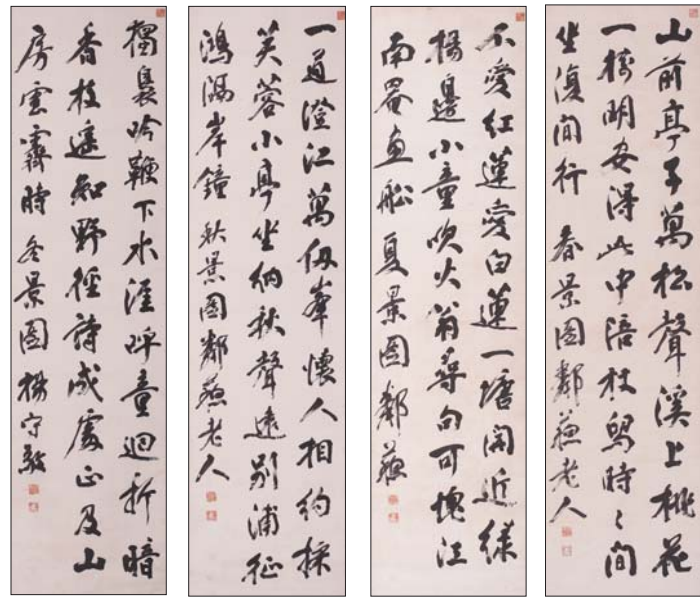 山前亭子萬松聲溪上桃花
一樹明安得此中陪杖舄時〻間
坐復間行 春景圖鄰蘇老人
不愛紅蓮愛白蓮一塘開近綠
楊邊小童吹火翁尋句可愧江
南罨畫船夏景圖 鄰蘇
一道澄江萬仞峯懷人相約採
芙蓉小亭坐納秋聲遠別浦征
鴻隔岸鐘 秋景圖鄰蘇老人
獨裊吟鞭下水涯呼童迴折暗
香枝遙知野徑詩成處正及山
房雪霽時 冬景圖 楊守敬